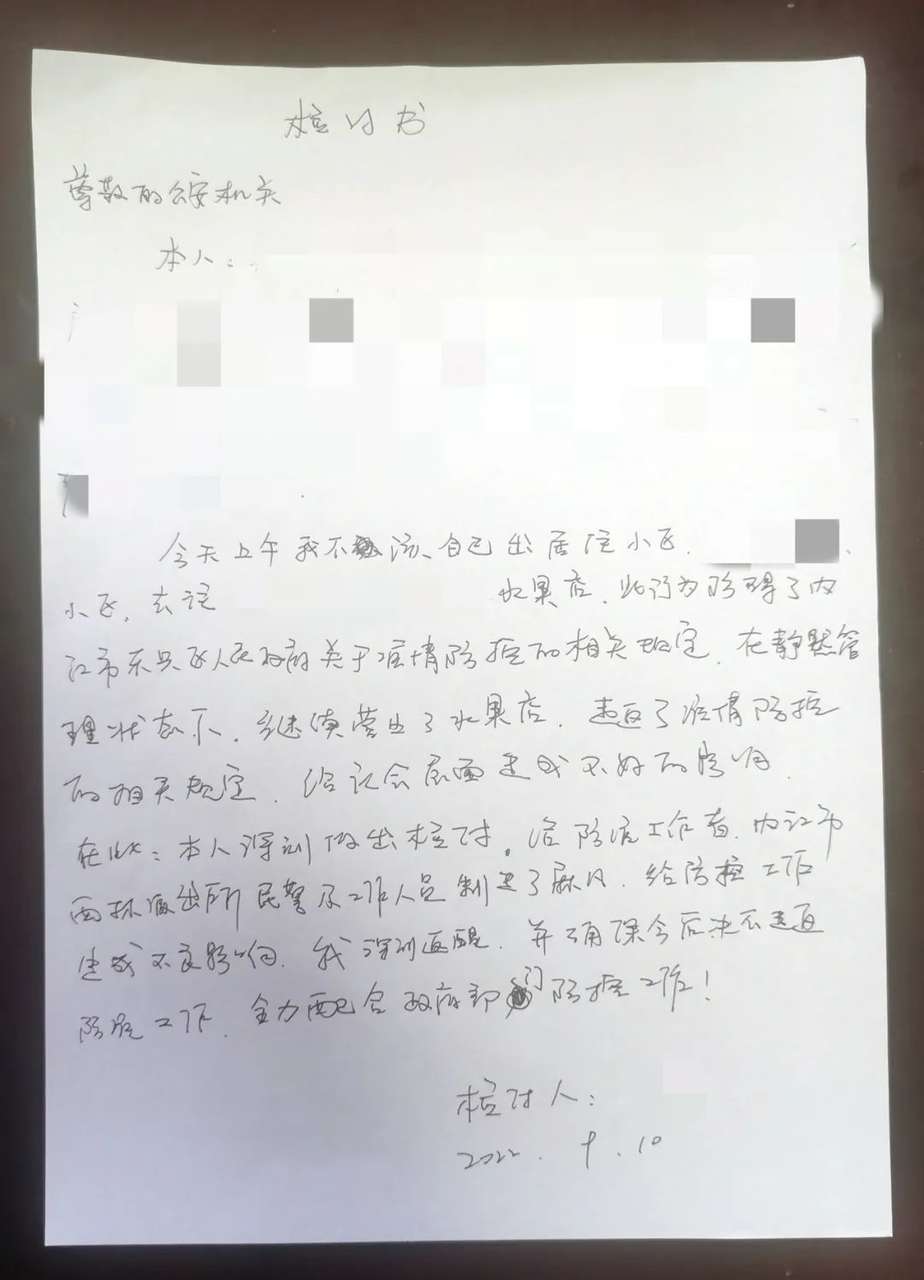 检讨书
尊敬的公安机关
本人：
今天上午我不 自己出居住小区.
小区, 去该 水果店, 此行为 了内
江市东兴区人民政府关于疫情防控的相关规定, 在静默管
理状态下, 继续营业了水果店, 违反了疫情防控
的相关规定, 给社会层面造成不好的影响.
在此: 本人深刻做出检讨, 给防疫工作者, 内江市
西林派出所民警及工作人员制造了麻烦, 给防控工作
造成不良影响. 我深刻 , 并确保今后决不违反
防疫工作, 全力配合政府部门防控工作!
检讨人:
2022. 9. 10